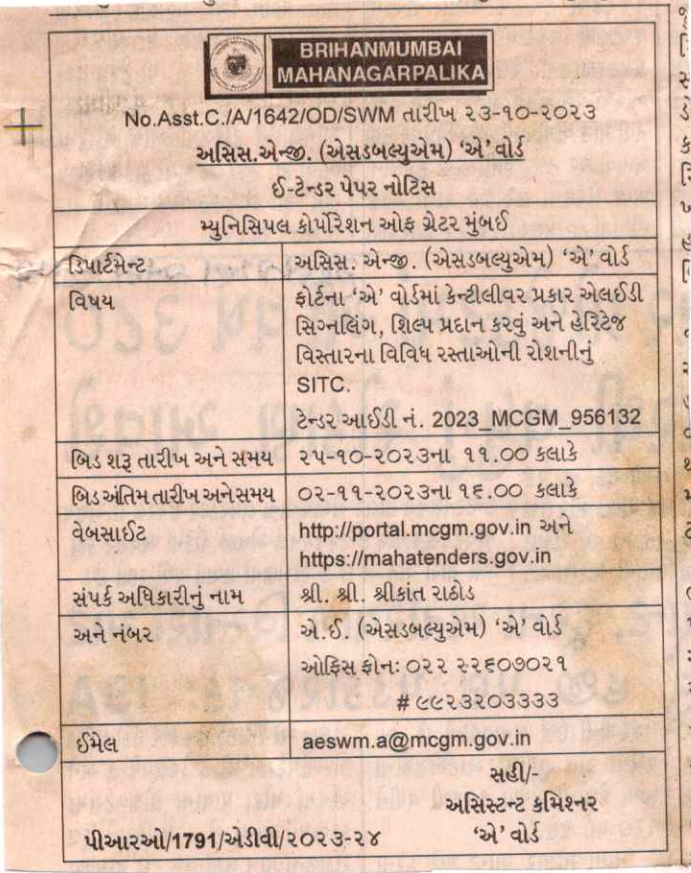 BRIHANMUMBAI
MAHANAGARPALIKA
No.Asst.C./A/1642/OD/SWM તારીખ ૨૩-૧૦-૨૦૨૩
અસિસ.એન્જી. (એસડબલ્યુએમ) ‘એ’ વોર્ડ
ઈ-ટેન્ડર પેપર નોટિસ
મ્યુનિસિપલ કોર્પોરેશન ઓફ ગ્રેટર મુંબઈ
ડિપાર્ટમેન્ટ અસિસ. એન્જી. (એસડબલ્યુએમ) ‘એ’ વોર્ડ
વિષય ફોર્ટના ‘એ’ વોર્ડમાં કેન્ટીલીવર પ્રકાર એલઈડી
સિગ્નલિંગ, શિલ્પ પ્રદાન કરવું અને હેરિટેજ
વિસ્તારના વિવિધ રસ્તાઓની રોશનીનું
SITC.
ટેન્ડર આઈડી નં. 2023_MCGM_956132
બિડ શરૂ તારીખ અને સમય ૨૫-૧૦-૨૦૨૩ના ૧૧.૦૦ કલાકે
બિડ અંતિમ તારીખ અને સમય ૦૨-૧૧-૨૦૨૩ના ૧૬.૦૦ કલાકે
વેબસાઈટ http://portal.mcgm.gov.in અને
https://mahatenders.gov.in
સંપર્ક અધિકારીનું નામ શ્રી. શ્રી. શ્રીકાંત રાઠોડ
અને નંબર એ.ઈ. (એસડબલ્યુએમ) ‘એ’ વોર્ડ
ઓફિસ ફોનઃ ૦૨૨ ૨૨૬૦૭૦૨૧
# ૯૯૨૩૨૦૩૩૩૩
ઈમેલ aeswm.a@mcgm.gov.in
સહી/-
અસિસ્ટન્ટ કમિશ્નર
પીઆરઓ/1791/એડીવી/૨૦૨૩-૨૪ ‘એ’ વોર્ડ